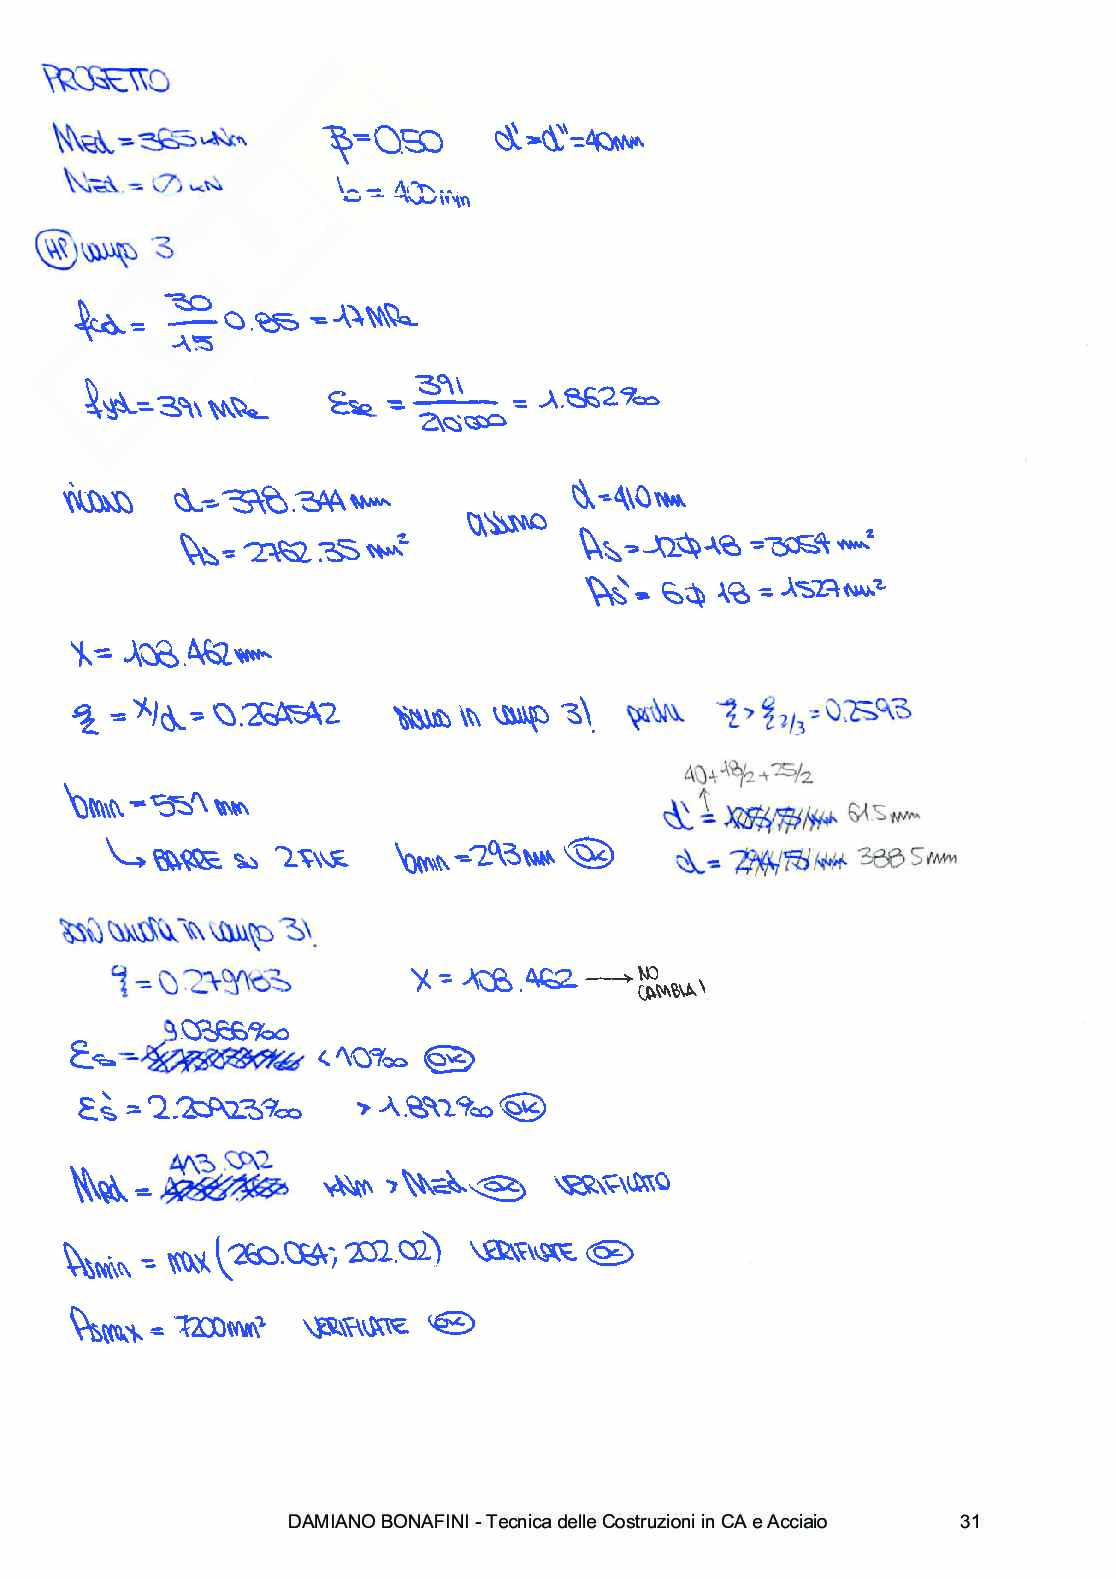 PROGETTO
MEd = 365 kNm β = 0.50 d' = d'' = 40mm
NEd = 0 kN b = 400 mm
HP campo 3
fcd = 30/1.5 0.85 = 17 MPa
fyd = 391 MPa εse = 391/210'000 = 1.862‰
ricavo d = 378.344 mm assumo d = 410 mm
As = 2762.35 mm² As = 12Φ18 = 3054 mm²
As' = 6Φ18 = 1527 mm²
x = 108.462 mm
ξ = x/d = 0.264542 siamo in campo 3! perché ξ > ξ2/3 = 0.2593
40+18/2+25/2
bmin = 551 mm d' = 61.5 mm
↳ BARRE SU 2 FILE bmin = 293 mm OK d = 388.5 mm
sono ancora in campo 3!
ξ = 0.279183 x = 108.462 → NO CAMBIA!
εs = 9.0366‰ < 10‰ OK
εs' = 2.20923‰ > 1.892‰ OK
MRd = 413.092 kNm > MEd OK VERIFICATO
Asmin = max(260.064; 202.02) VERIFICATE OK
Asmax = 7200mm² VERIFICATE OK
DAMIANO BONAFINI - Tecnica delle Costruzioni in CA e Acciaio 31